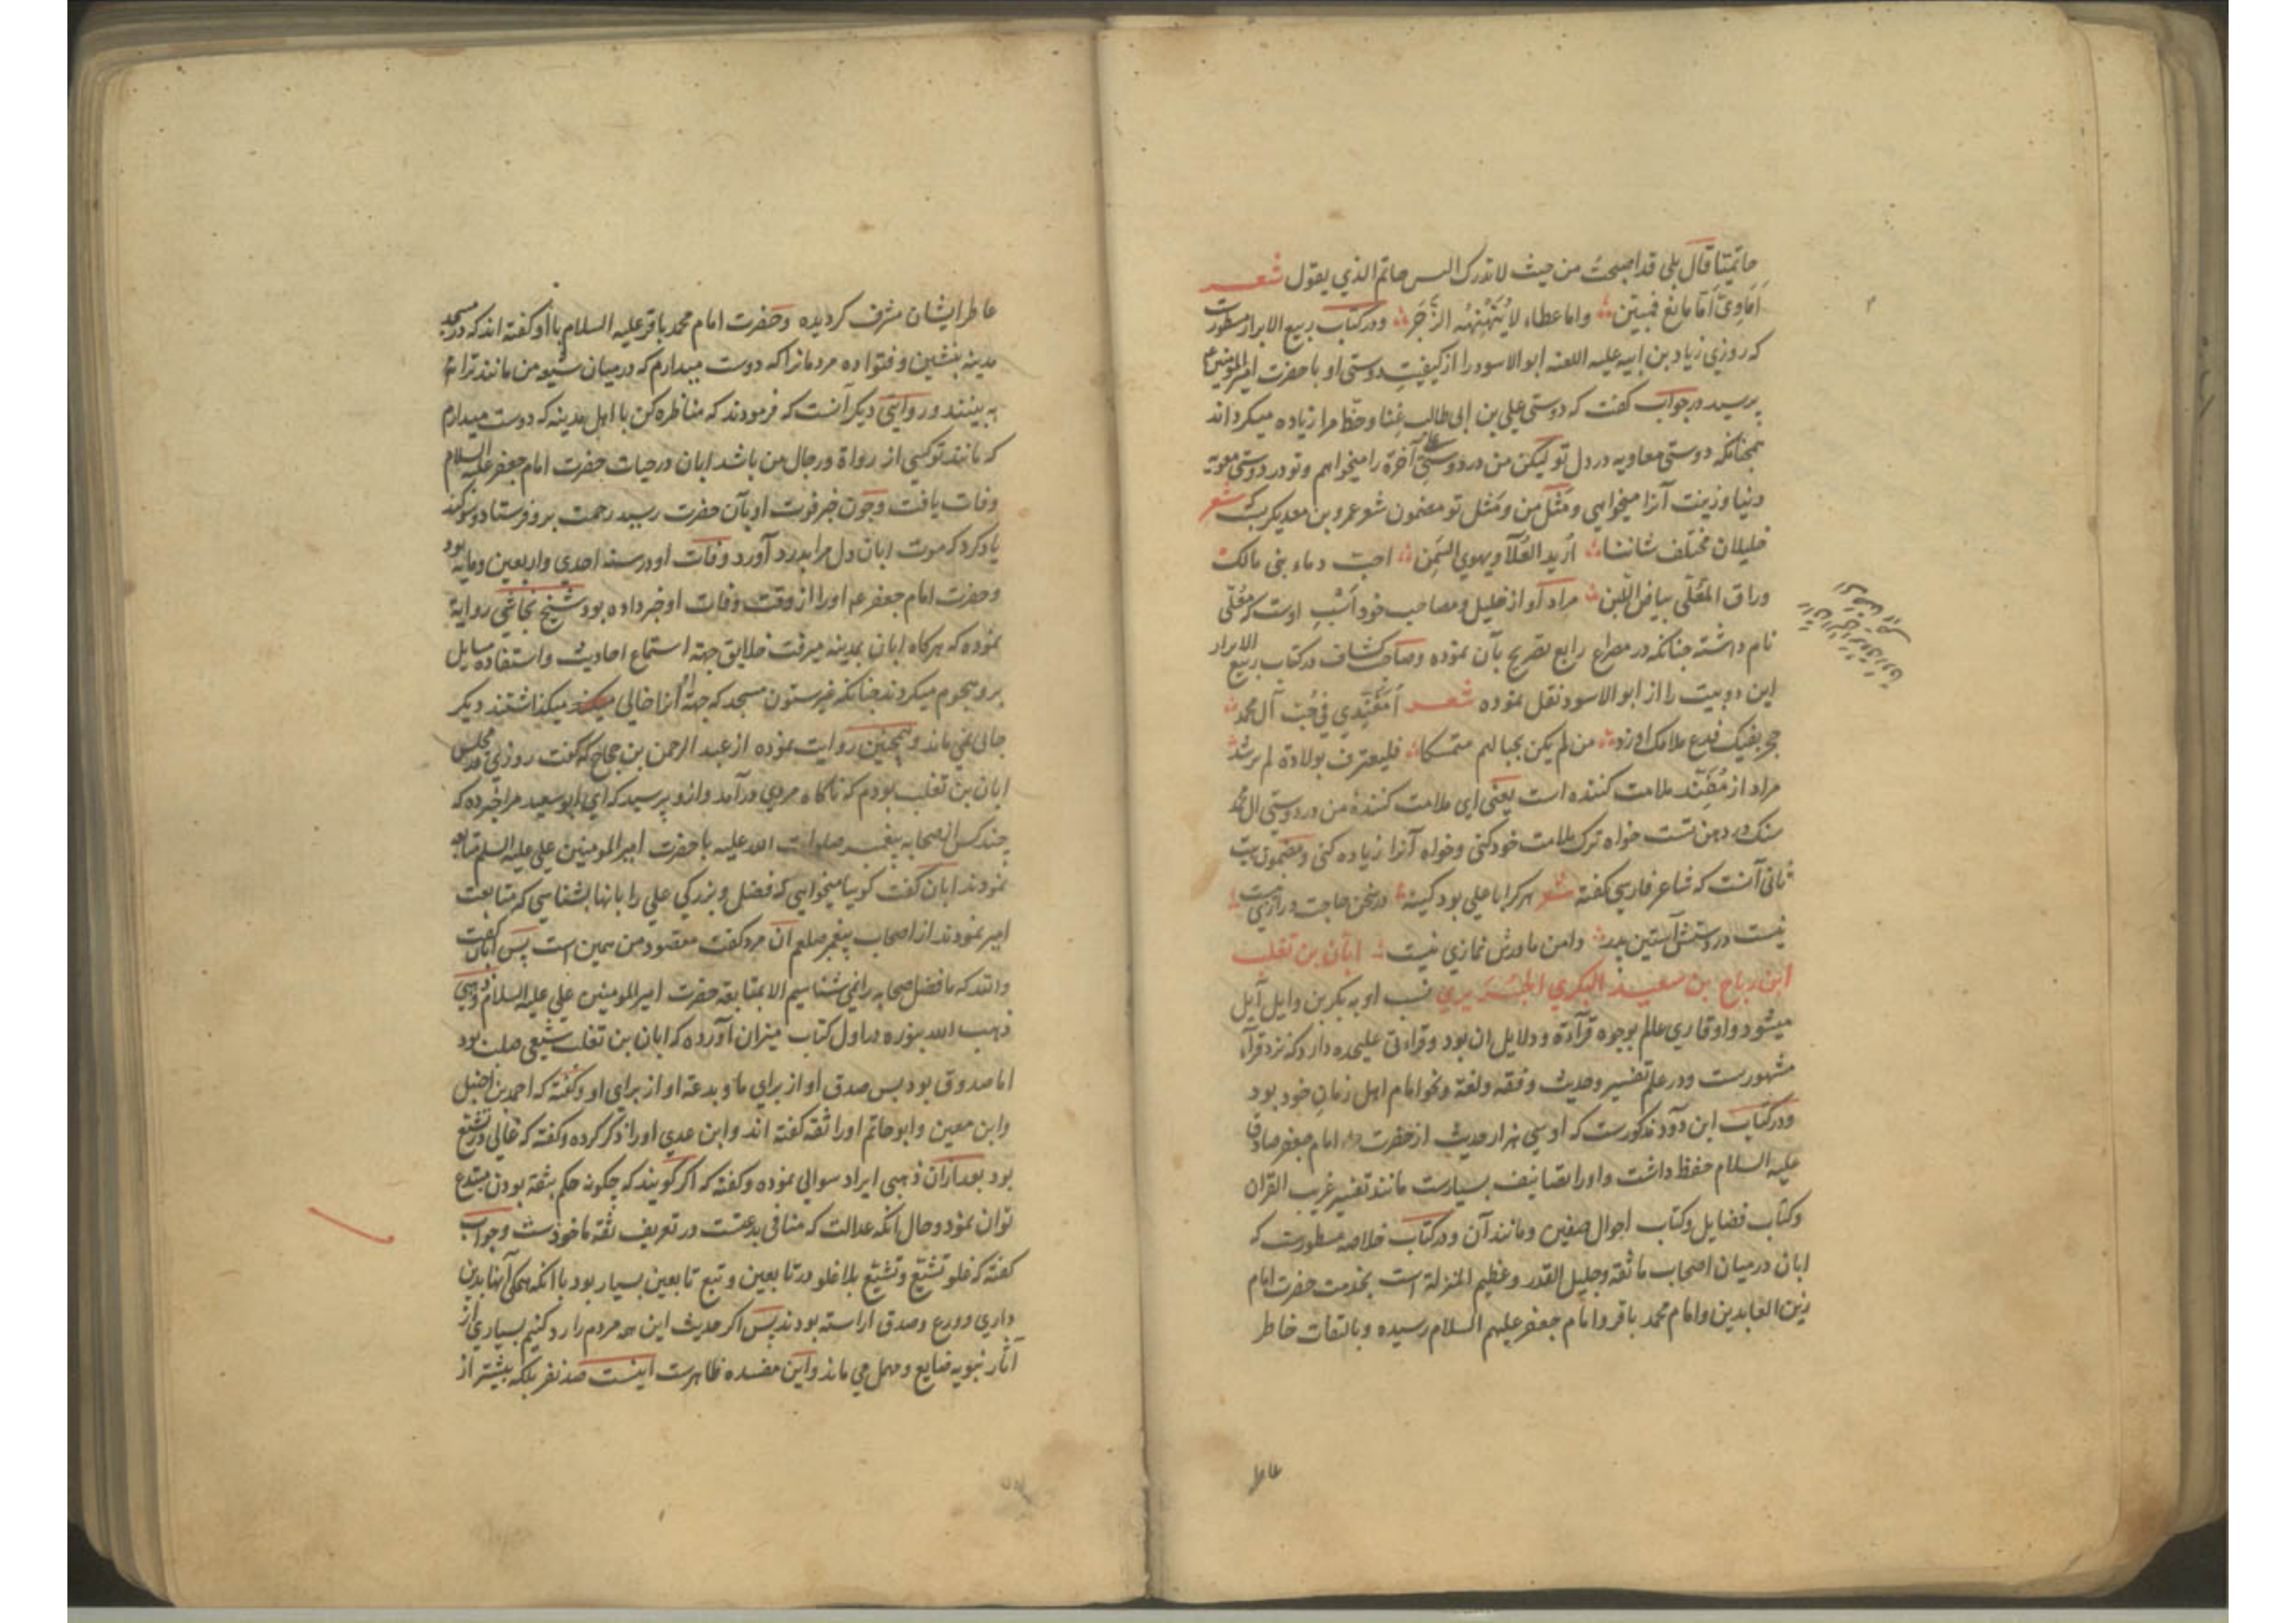 حاتمیتنا قال بلی قد اصبحتُ من حیث لا تدرک الیس حاتم الذی یقول شعـــر
اَمَاوِیَّ اَمّا مانع فمبیّن واما عطاء لا یُنَهْنِهُه الزَّجَر ودر کتاب ربیع الابرار مسطورست
که روزی زیاد بن ابیه علیه اللعنه ابو الاسود را از کیفیت دوستی او با حضرت امیر المومنین ع
پرسید در جواب کفت که دوستی علی بن ابی طالب غنا وحظ مرا زیاده میکرداند
همچنانکه دوستی معاویه در دل تو لیکن من در دوستی علی آخرة را میخواهم وتو در دوستی معویه
دنیا وزینت آنرا میخواهی ومَثَل من ومَثل تو مضمون شعر عمرو بن معدیکربست شعر
خلیلان مختلف شاننا اُرید العَلآ ویهوی السَّمِن احبّ دماء بنی مالک
وراق المُعَلّی بیاض اللّبن مراد او از خلیل ومصاحب خود اسب اوست که معلّی
نام داشته چنانکه در مصراع رابع تصریح بآن نموده وصاحب کشاف در کتاب ربیع الابرار
این دو بیت را از ابو الاسود نقل نموده شعـــر اَمُفَنِّدی فی حُبّ آل محمد
حجر بفیک فدع ملامک او زد من لم یکن بحبالهم متمسکا فلیعترف بولادة لم ترشد
مراد از مُفَنّد ملامت کننده است یعنی ای ملامت کنندهٔ من در دوستی ال محمد
سنک در دهن تست خواه ترک ملامت خود کنی وخواه آنرا زیاده کنی ومضمون بیت
ثانی آنست که شاعر فارسی کفته شعر هر کرا با علی بود کینه در سخن حاجت درازی نیست
نیست در دستش آستین پدر دامن مادرش نمازی نیست ابان بن تغلب
ابن رباح بن سعید البکری الجُـرَیری نسب او به بکر بن وایل آیل
میشود واو قاری عالم بوجوه قرآءة ودلایل ان بود وقراءتی علیحده دارد که نزد قرآء
مشهورست ودر علم تفسیر وحدیث وفقه ولغة ونحو امام اهل زمان خود بود
ودر کتاب ابن داود مذکورست که او سی هزار حدیث از حضرت امام جعفر صادق
علیه السلام حفظ داشت واورا تصانیف بسیارست مانند تفسیر غریب القران
وکتاب فضایل وکتاب احوال صفین ومانند آن ودر کتاب خلاصه مسطورست که
ابان در میان اصحاب ما ثقه وجلیل القدر وعظیم المنزلة است بخدمت حضرت امام
زین العابدین وامام محمد باقر وامام جعفر علیهم السلام رسیده وبالتفات خاطر
عاطر
عاطر ایشان مشرف کردیده وحضرت امام محمد باقر علیه السلام با او کفته اند که در مسجد
مدینه بنشین وفتوا ده مردمانرا که دوست میدارم که در میان شیعهٔ من مانند ترا
به بینند ودر روایتی دیکر آنست که فرمودند که مناظره کن با اهل مدینه که دوست میدارم
که مانند تو کسی از رواة ورجال من باشد ابان در حیات حضرت امام جعفر علیه السلام
وفات یافت وچون خبر فوت او بآن حضرت رسید رحمت برو فرستاد وسوکند
یاد کرد که موت ابان دل مرا بدرد آورد وفات او در سنه احدی واربعین ومایه بود
وحضرت امام جعفر ع اورا از وقت وفات او خبر داده بود شیخ نجاشی روایة
نموده که هرکاه ابان بمدینه میرفت خلایق جهة استماع احادیث واستفاده مسایل
برو هجوم میکردند چنانکه غیر ستون مسجد که جهة او آنرا خالی میکذاشتند دیکر
جائی نمی ماند وهمچنین روایت نموده از عبد الرحمن بن حجاج که کفت روزی در مجلس
ابان بن تغلب بودم که ناکاه مردی درآمد وازو پرسید که ای ابو سعید مرا خبر ده که
چند کس از صحابه پیغمبر صلوات الله علیه با حضرت امیر المومنین علی علیه السلم متابعه
نمودند ابان کفت کویا میخواهی که فضل وبزرکی علی را بانها بشناسی که متابعت
امیر نمودند از اصحاب پیغمبر صلعم آن مرد کفت مقصود من همین است پس ابان کفت
والله که ما فضل صحابه را نمی شناسیم الا بمتابعة حضرت امیر المومنین علی علیه السلام وذهبی
ذهب الله بنوره در اول کتاب میزان آورده که ابان بن تغلب شیعی صلب بود
اما صدوق بود پس صدق او از برای ما وبدعة او از برای او وکفته که احمد بن حنبل
وابن معین وابو حاتم اورا ثقه کفته اند وابن عدی اورا ذکر کرده وکفته که غالی در تشیع
بود بعد ازان ذهبی ایراد سوالی نموده وکفته که اکر کویند که چکونه حکم بثقه بودن مبتدع
توان نمود وحال آنکه عدالت که منافی بدعتست در تعریف ثقه ماخوذست وجواب
کفته که غلو تشیّع وتشیّع بلا غلو در تابعین وتبع تابعین بسیار بود با آنکه همکی آنها بدین
داری وورع وصدق اراسته بودند پس اکر حدیث این همه مردم را رد کنیم بسیاری از
آثار نبویه ضایع ومهمل می ماند واین مفسده ظاهرست اینست صد نفر بلکه بیشتر از